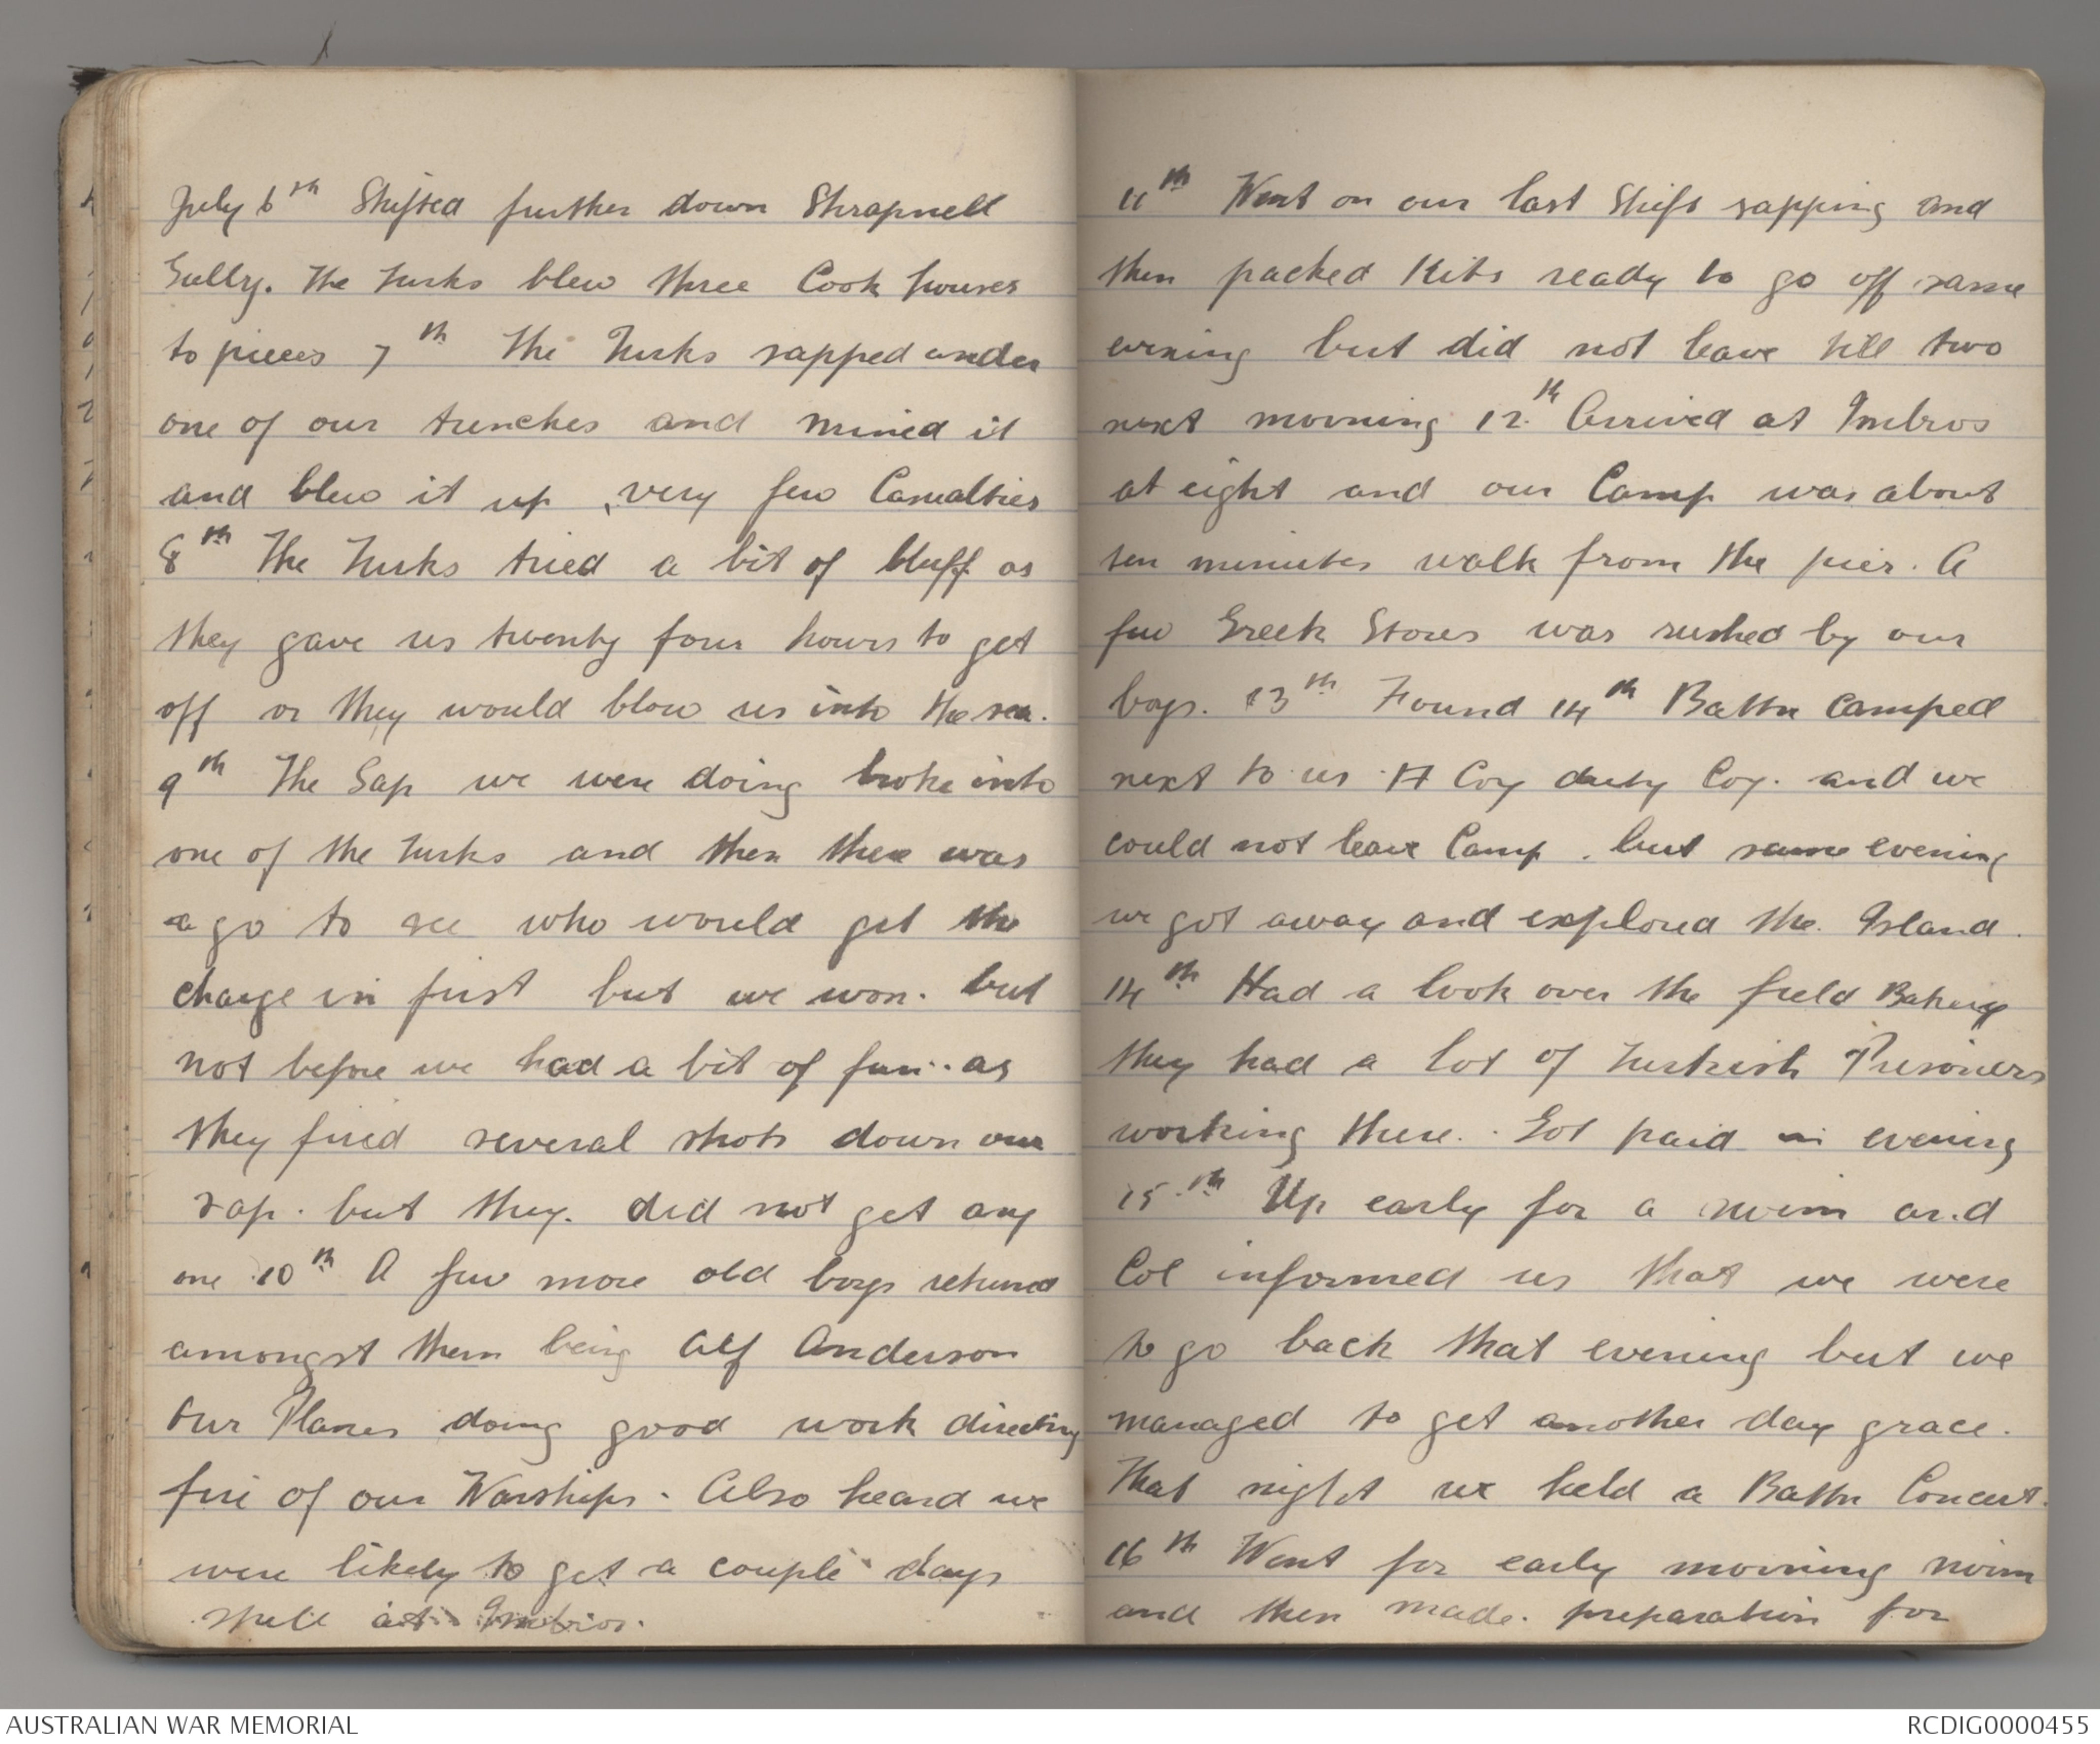 July 6th Shifted further down Shrapnell
Gully. The Turks blew three Cook houses
to pieces 7th The Turks sapped under
one of our trenches and mined it
and blew it up, very few Casualties
8th The Turks tried a bit of bluff as
they gave us twenty four hours to get
off or they would blow us into the sea.
9th The Sap we were doing broke into
one of the Turks and then there was
a go to see who would get the
charge in first but we won. but
not before we had a bit of fun. as
they fired several shots down our
sap. but they. did not get any
one 10th A few more old boys returned
amongst them being Alf Anderson
Our Planes doing good work directing
fire of our Warships. Also heard we
were likely to get a couple days
spell at Imbros.
11th Went on our last Shift sapping and
then packed Kits ready to go off same
evening but did not leave till two
next morning 12th Arrived at Imbros
at eight and our Camp was about
ten minutes walk from the pier. A
few Greek Stores was rushed by our
boys. 13th Found 14th Battn camped
next to us A Coy duty Coy. and we
could not leave Camp. but same evening
we got away and explored the Island.
14th Had a look over the field Bakery
they had a lot of Turkish Prisoners
working there. Got paid in evening
15th Up early for a swim and
Col informed us that we were
to go back that evening but we
managed to get another day grace.
That night we held a Battn Concert.
16th Went for early morning swim
and then made. preparation for
AUSTRALIAN WAR MEMORIAL
RCDIG0000455